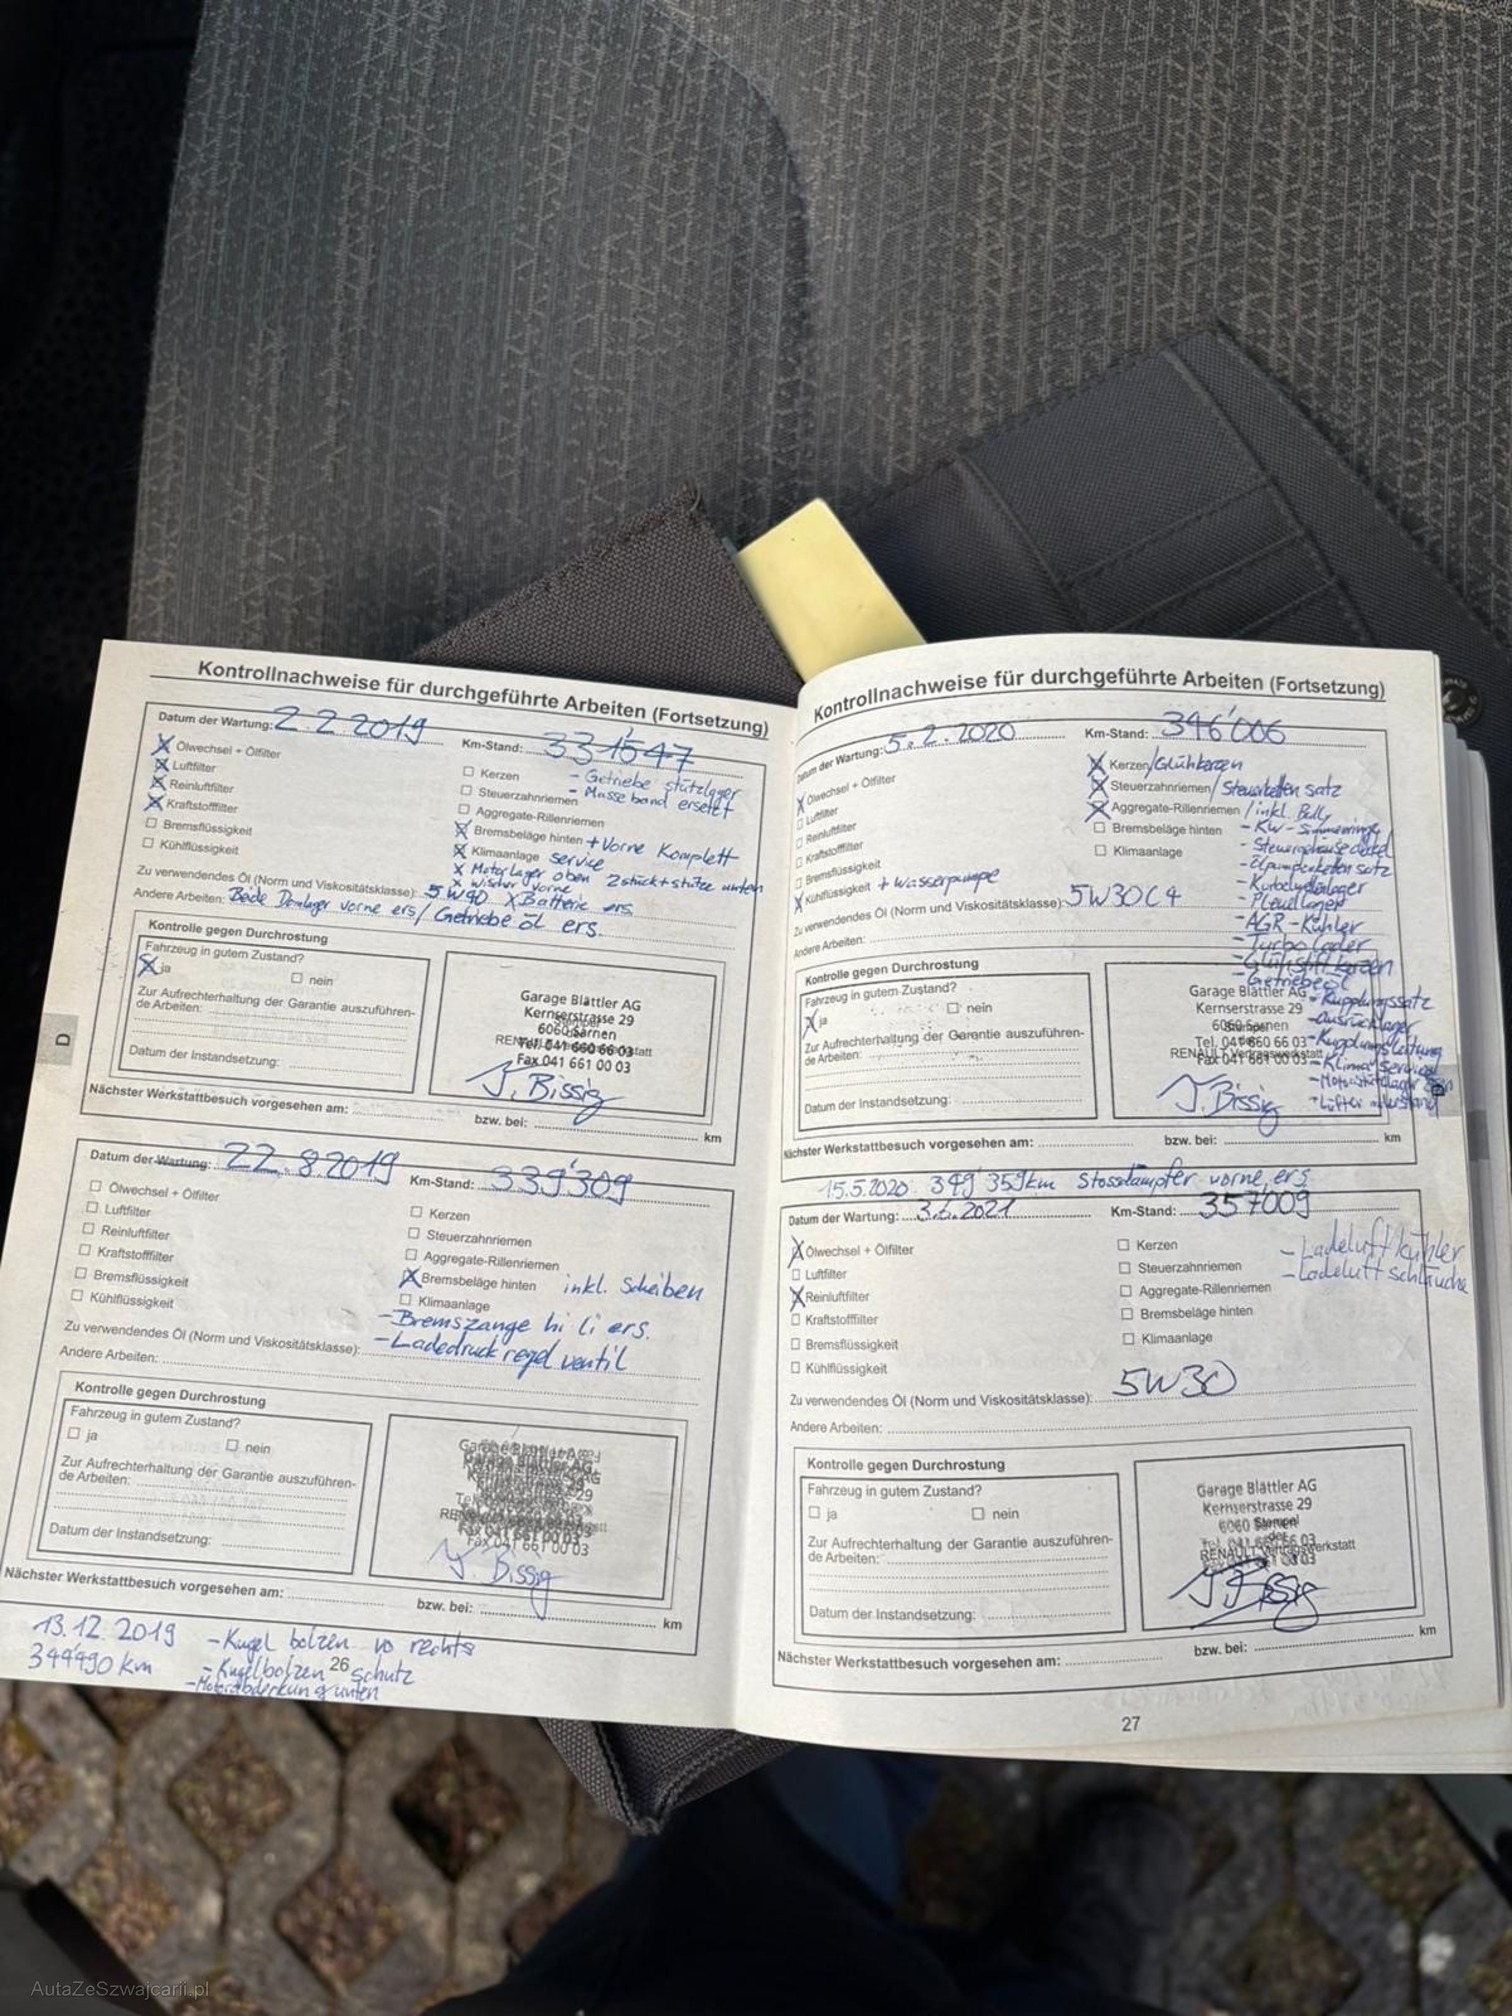 Kontrollnachweise für durchgeführte Arbeiten (Fortsetzung)
Datum der Wartung: 2.2.2019 Km-Stand: 331'547
Ölwechsel + Ölfilter
Luftfilter
Reinluftfilter
Kraftstofffilter
Bremsflüssigkeit
Kühlflüssigkeit
Kerzen - Getriebe stützlager
Steuerzahnriemen - Masseband ersetzt
Aggregate-Rillenriemen
Bremsbeläge hinten + Vorne Komplett
Klimaanlage service
x Motorlager oben 2 stück + stütze unten
x Wischer vorne
Zu verwendendes Öl (Norm und Viskositätsklasse): 5W40 X Batterie ers
Andere Arbeiten: Beide Domlager vorne ers / Getriebe öl ers.
Kontrolle gegen Durchrostung
Fahrzeug in gutem Zustand?
ja nein
Zur Aufrechterhaltung der Garantie auszuführen-
de Arbeiten:
Datum der Instandsetzung:
Garage Blättler AG
Kernserstrasse 29
6060 Sarnen
Tel. 041 660 66 03
Fax 041 661 00 03
J. Bissig
Nächster Werkstattbesuch vorgesehen am: bzw. bei: km
Datum der Wartung: 22.8.2019 Km-Stand: 339'309
Ölwechsel + Ölfilter
Luftfilter
Reinluftfilter
Kraftstofffilter
Bremsflüssigkeit
Kühlflüssigkeit
Kerzen
Steuerzahnriemen
Aggregate-Rillenriemen
Bremsbeläge hinten inkl. Scheiben
Klimaanlage
- Bremszange hi li ers.
- Ladedruck regel ventil
Zu verwendendes Öl (Norm und Viskositätsklasse):
Andere Arbeiten:
Kontrolle gegen Durchrostung
Fahrzeug in gutem Zustand?
ja nein
Zur Aufrechterhaltung der Garantie auszuführen-
de Arbeiten:
Datum der Instandsetzung:
Garage Blättler AG
Fax 041 661 00 03
J. Bissig
Nächster Werkstattbesuch vorgesehen am: bzw. bei: km
13.12.2019 - Kugel bolzen vo rechts
344'490 km - Kugelbolzen schutz
- Motorabdeckung unten
26
D
Kontrollnachweise für durchgeführte Arbeiten (Fortsetzung)
Datum der Wartung: 5.2.2020 Km-Stand: 346'006
Ölwechsel + Ölfilter
Luftfilter
Reinluftfilter
Kraftstofffilter
Bremsflüssigkeit
Kühlflüssigkeit + Wasserpumpe
Kerzen / Glühkerzen
Steuerzahnriemen / Steuerketten satz
Aggregate-Rillenriemen / inkl. Bully
Bremsbeläge hinten - KW-Simmeringe
Klimaanlage - Steuergehäusedeckel
- Ölpumpenketten satz
- Kurbelwellenlager
- Pleuellager
- AGR-Kühler
- Turbolader
- Glühstiftkerzen
- Getriebeöl
- Kupplungssatz
- Ausrücklager
- Kupplungsleitung
- Klimaservice
Zu verwendendes Öl (Norm und Viskositätsklasse): 5W30 C4
Andere Arbeiten:
Kontrolle gegen Durchrostung
Fahrzeug in gutem Zustand?
ja nein
Zur Aufrechterhaltung der Garantie auszuführen-
de Arbeiten:
Datum der Instandsetzung:
Garage Blättler AG
Kernserstrasse 29
6060 Sarnen
Tel. 041 660 66 03
RENAULT Vertragswerkstatt
Fax 041 661 00 03
J. Bissig
Nächster Werkstattbesuch vorgesehen am: bzw. bei: km
15.5.2020 349'359km Stossdämpfer vorne ers
Datum der Wartung: 3.6.2021 Km-Stand: 357009
Ölwechsel + Ölfilter
Luftfilter
Reinluftfilter
Kraftstofffilter
Bremsflüssigkeit
Kühlflüssigkeit
Kerzen - Ladeluftkühler
Steuerzahnriemen - Ladeluftschläuche
Aggregate-Rillenriemen
Bremsbeläge hinten
Klimaanlage
Zu verwendendes Öl (Norm und Viskositätsklasse): 5W30
Andere Arbeiten:
Kontrolle gegen Durchrostung
Fahrzeug in gutem Zustand?
ja nein
Zur Aufrechterhaltung der Garantie auszuführen-
de Arbeiten:
Datum der Instandsetzung:
Garage Blättler AG
Kernserstrasse 29
6060 Sarnen
RENAULT Vertragswerkstatt
J. Bissig
Nächster Werkstattbesuch vorgesehen am: bzw. bei: km
27
AutaZeSzwajcarii.pl